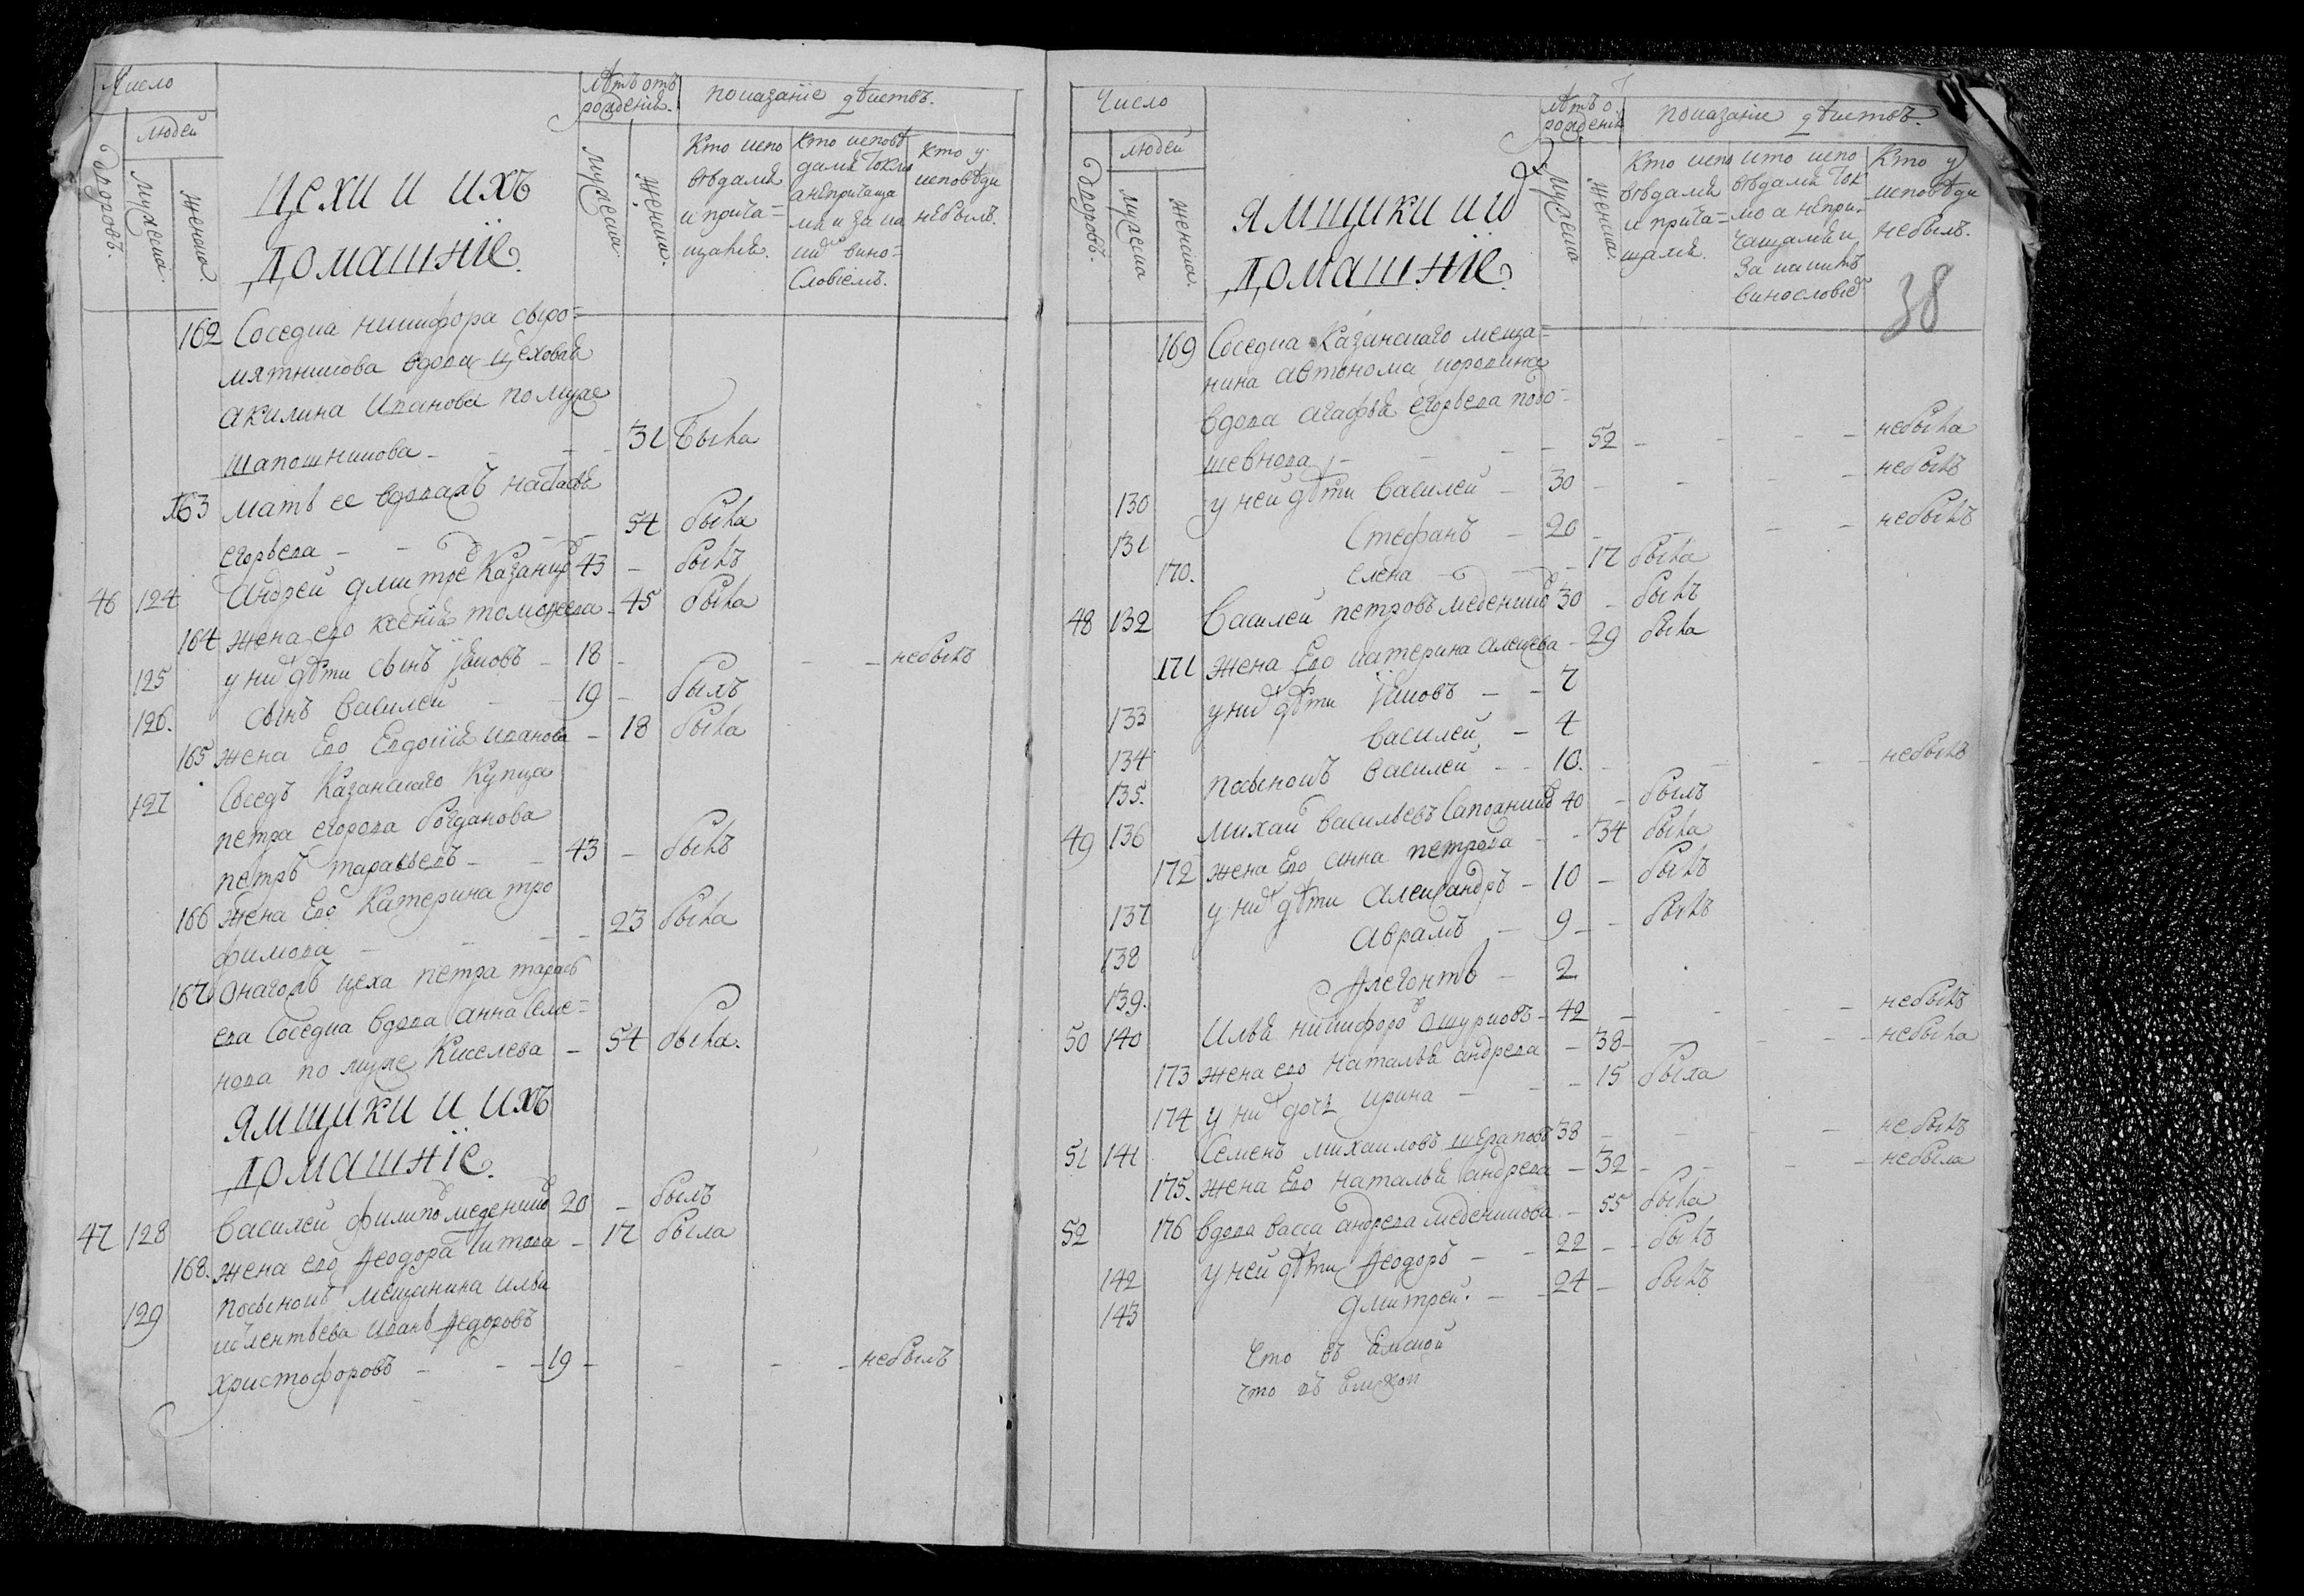 Число
людей
дворовъ.
мужеска.
женска.
Цехи и ихъ
домашніе.
лѣтъ отъ
рожденія.
мужеска
женска.
показаніе дѣиствъ.
Кто испо
вѣдался
и прича=
щался.
Кто исповѣ
дался токмо
а непричаща
лся и за ка
кид вино=
словіемъ.
Кто у
исповѣди
небылъ.
162 Соседка никифора сыро=
мятникова вдова цеховая
акилина Иванова по муже
шапошникова - - - 31 Была
163 мать ее вдоваяъ
егорьева - - - 54 была
46 124 Андреи дмитре Казанцо 43 - былъ
164 жена ево ксенія - 45 была
125 у них дѣти сынъ Іяковъ - 18 - - - небылъ
126. сынъ Василеи - 19 - былъ
165 жена Ево Евдокия иванова - 18 была
127 Соседъ Казанскаго Купца
петра егорова богданова
петръ тарасьевъ - - 43 - былъ
166 жена Ево Катерина тро
фимова - - - 23 была
167 Онагожъ цеха петра тарасъ
ева соседка вдова анна семе=
нова по муже Киселева - 54 была.
ямщики и ихъ
домашніе.
47 128 Василеи филипо меденико 20 - былъ
168. жена ево Ѳеодора титова - 17 была
129 пасынокъ мещанина ильи
иванъ Ѳедоровъ
христофоровъ - - - 19 - - - - небылъ
Число
людей
дворовъ.
мужеска
женска.
ямщики и их
домашніе.
лѣтъ о
рожденія
мужеска
женска.
показаніе дѣиствъ.
Кто испо
вѣдался
и прича=
щался.
Кто испо
вѣдался ток
мо а непри=
чащался и
за какимъ
винословіе
Кто у
исповѣди
небылъ.
38
169 Соседка Казанскаго меща=
нина автонома коровина
вдова агафья егорьева подо=
шевнова - - - 52 - - - - небыла
130 у ней дѣти Василеи - 30 - - - - небылъ
131 Стефанъ - 20 - - - - небылъ
170. елена - - - 17 была
48 132 Василеи петровъ меденико 30 - былъ
171 жена Ево катерина алеѯева - 29 была
133 у них дѣти Іяковъ - - 7
134 василеи - 4
135. пасынокъ василеи - - 10. - - - - небылъ
49 136 михаи васильевъ Сапожнико 40 - былъ
172 жена Ево анна петрова - - 34 была
137 у них дѣти Алеѯандръ - 10 - былъ
138 аврамъ - 9 - - былъ
139. Ѳлегонтъ - 2
50 140 Илья никифоро ошурковъ - 42 - - - - небылъ
173 жена ево наталья андрева - 38 - - - - небыла
174 у них дочь ирина - - - 15 была
51 141 Семенъ михаиловъ шераповъ 38 - - - - небылъ
175. жена Ево наталья андрева - 32 - - - небыла
52 176 вдова васса андрева меденикова - 55 была
142 у ней дѣти Ѳеодоръ - - 22 - - былъ
143 дмитреи. - - 24 - былъ
что въ Емской
что въ